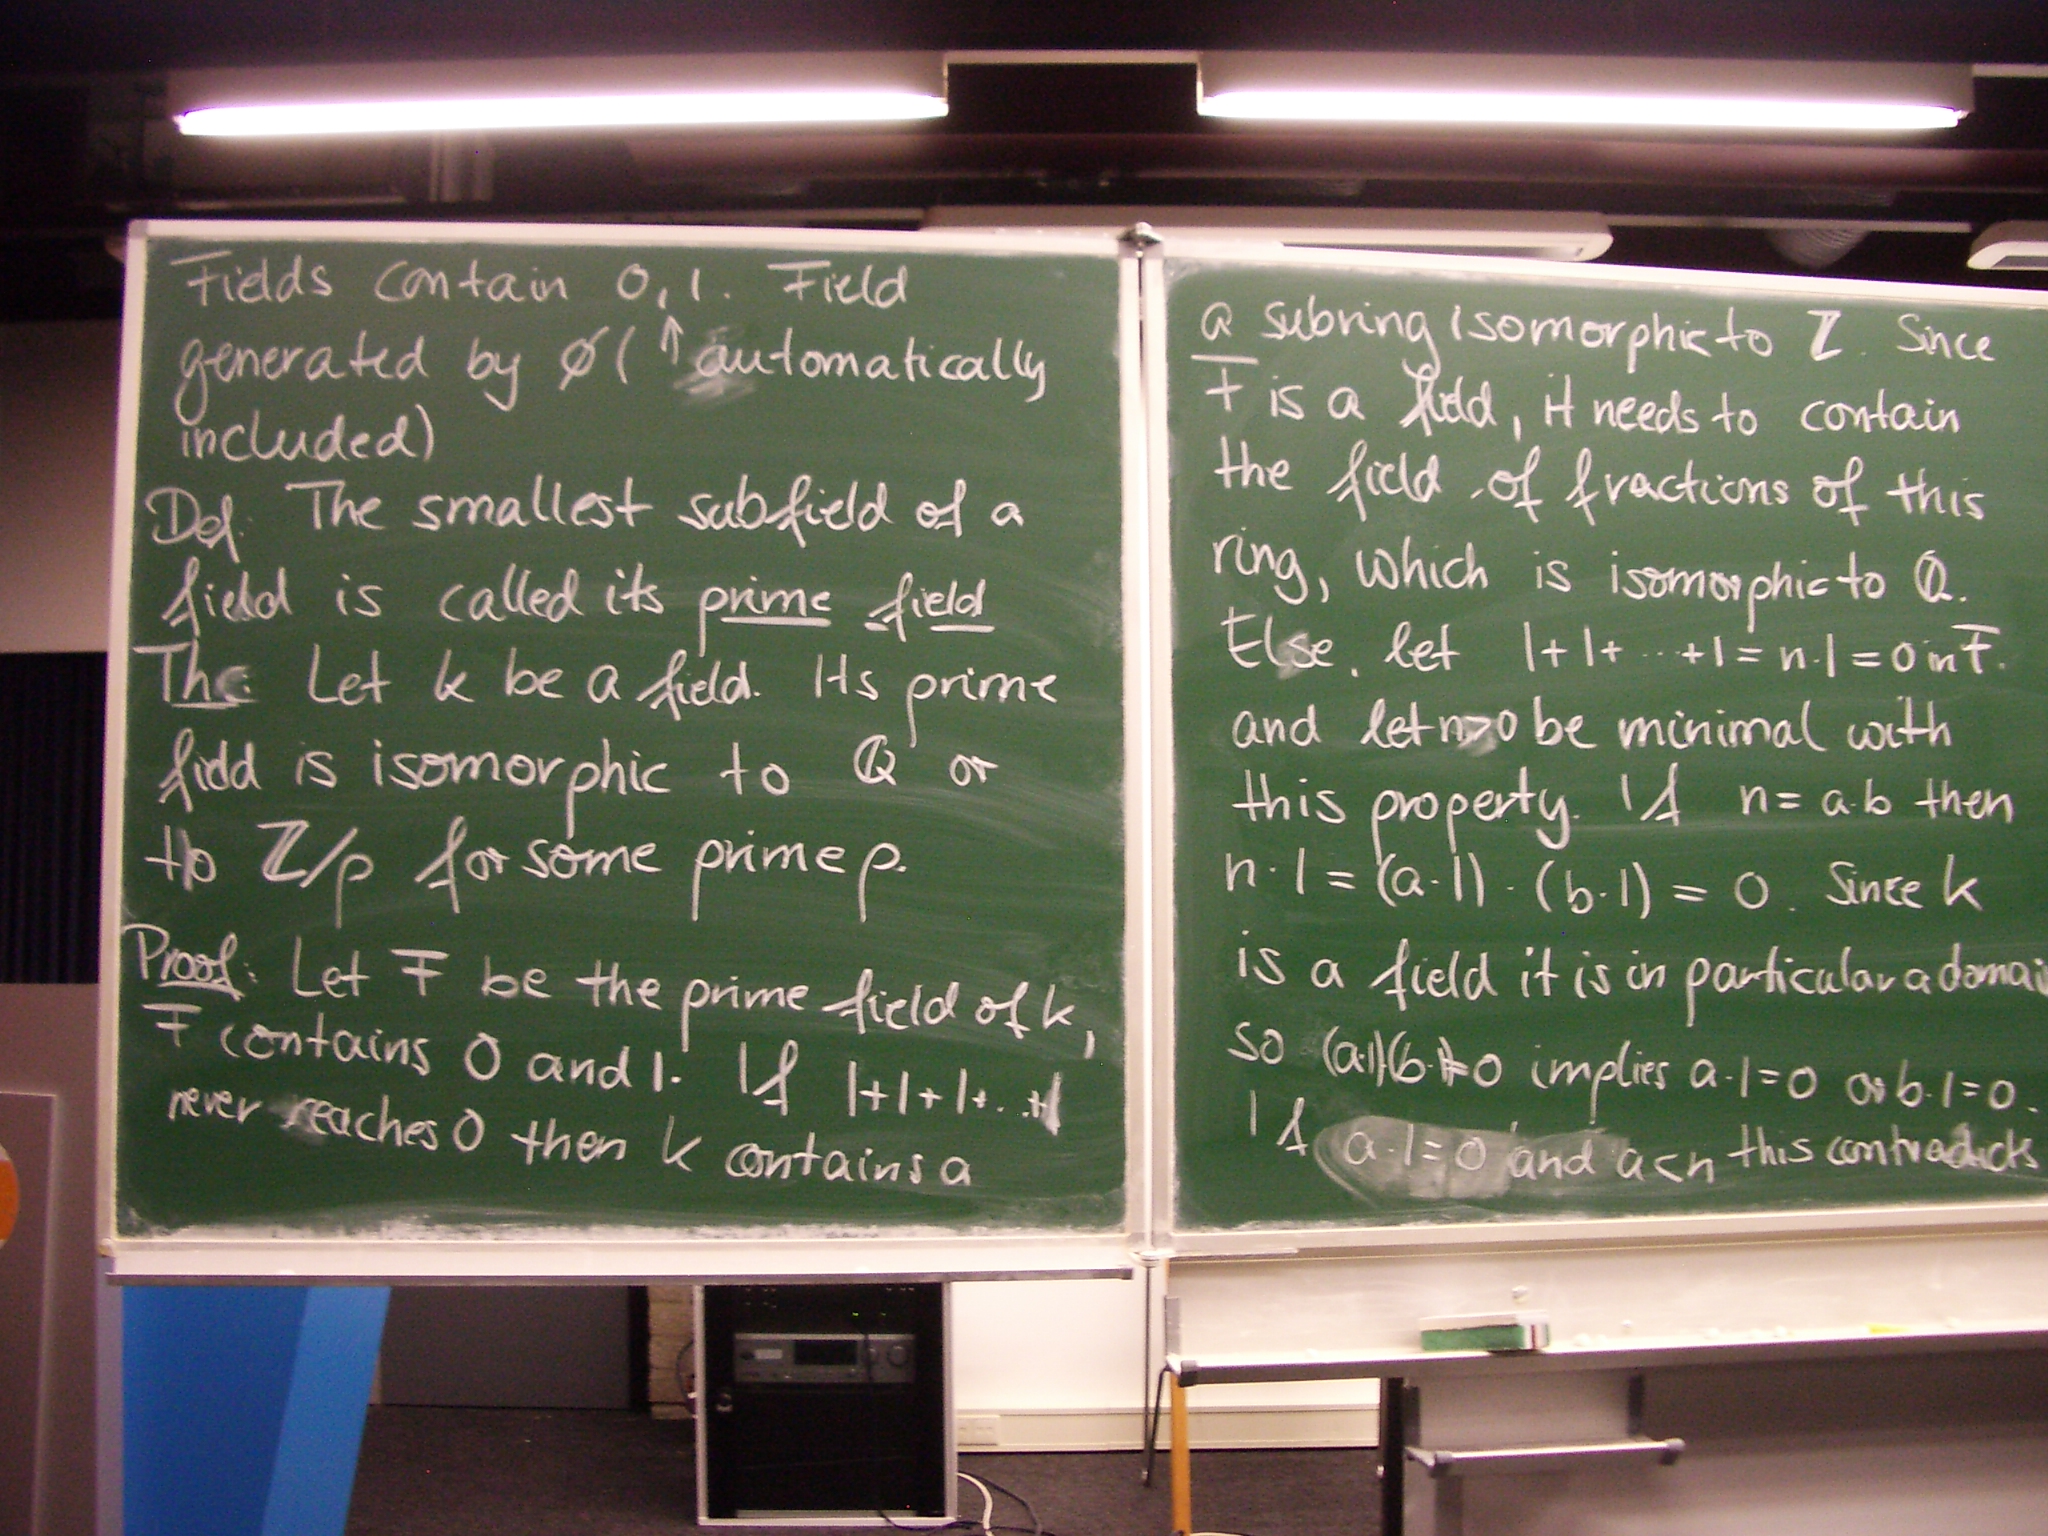 Fields contain 0,1. Field
generated by ∅ (↑ automatically
included)
Def: The smallest subfield of a
field is called its prime field
The: Let k be a field. Its prime
field is isomorphic to ℚ or
to ℤ/p for some prime p.
Proof: Let F be the prime field of k,
F contains 0 and 1. If 1+1+1+...+1
never reaches 0 then k contains a
a subring isomorphic to ℤ. Since
F is a field, it needs to contain
the field of fractions of this
ring, which is isomorphic to ℚ.
Else, let 1+1+...+1 = n·1 = 0 in F.
and let n>0 be minimal with
this property. If n = a·b then
n·1 = (a·1)·(b·1) = 0. Since k
is a field it is in particular a domai
so (a·1)(b·1)=0 implies a·1=0 or b·1=0.
If a·1=0 and a<n this contradicts